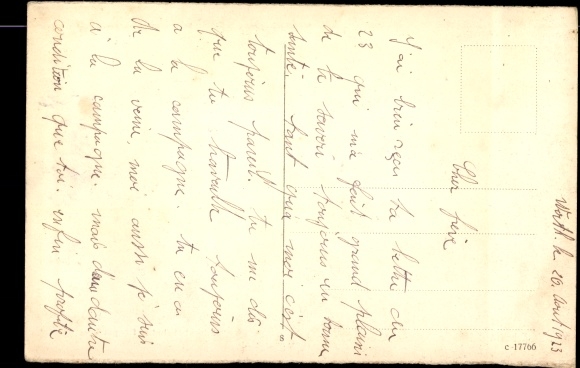 le 26. avril 1923
Cher frère
J'ai bien reçu ta lettre du
23 qui ma fait grand plaisir
de te savoir toujours en bonne
santé. tant qua moi c'est
toujours pareil. tu me dis
que tu travaille toujours
a la campagne. tu en a
de la veine, moi aussi je suis
a la campagne. mais dans d'autre
condition que toi. enfin profite
c-17766
8